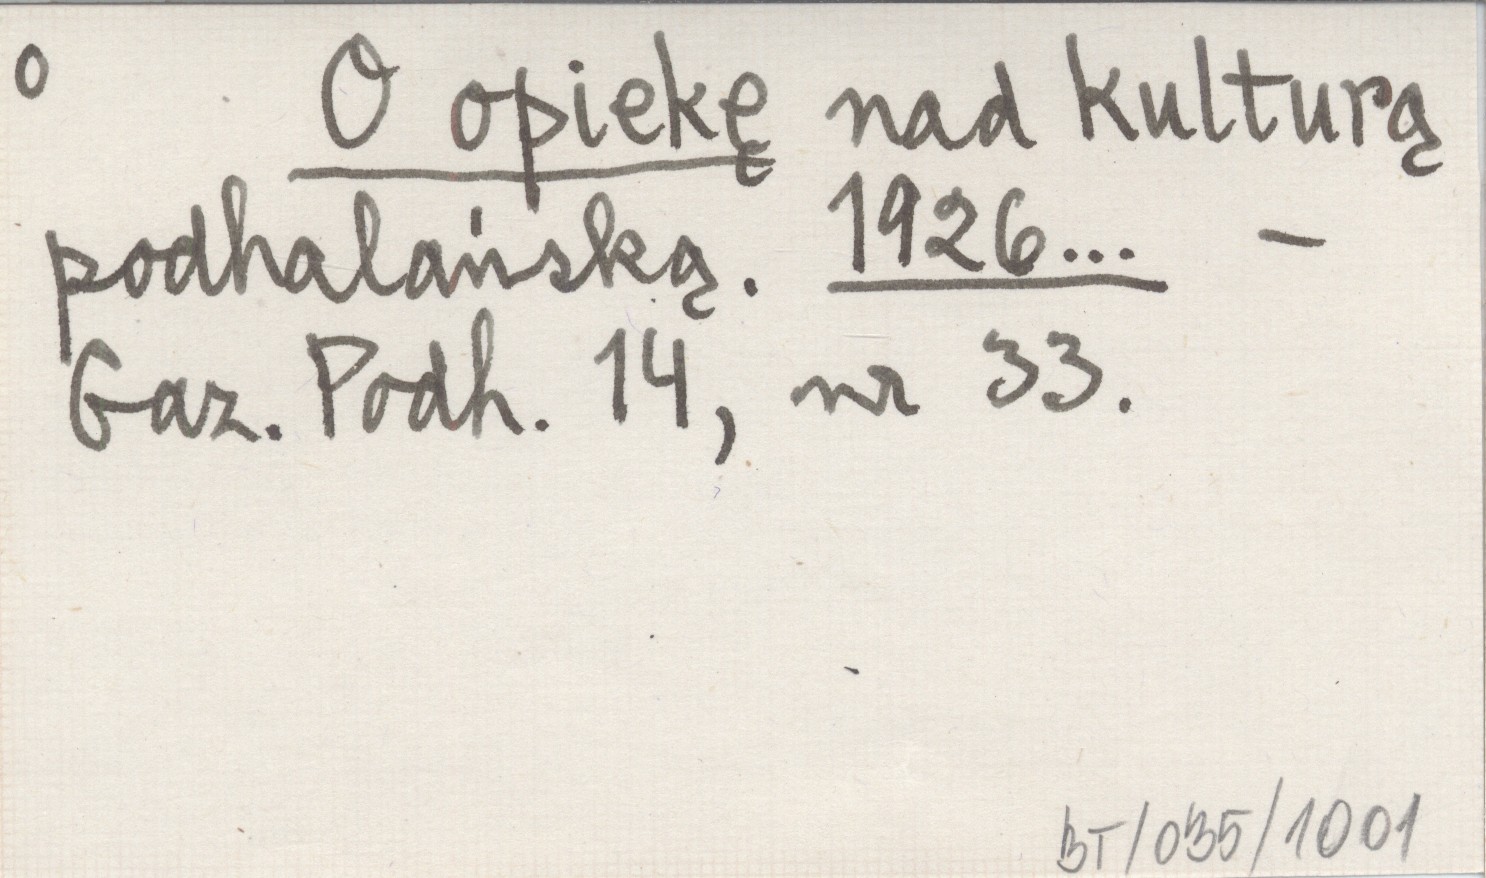 o O opiekę nad kulturą
podhalańską. 1926... –
Gaz. Podh. 14, nr 33.
BT/035/1001